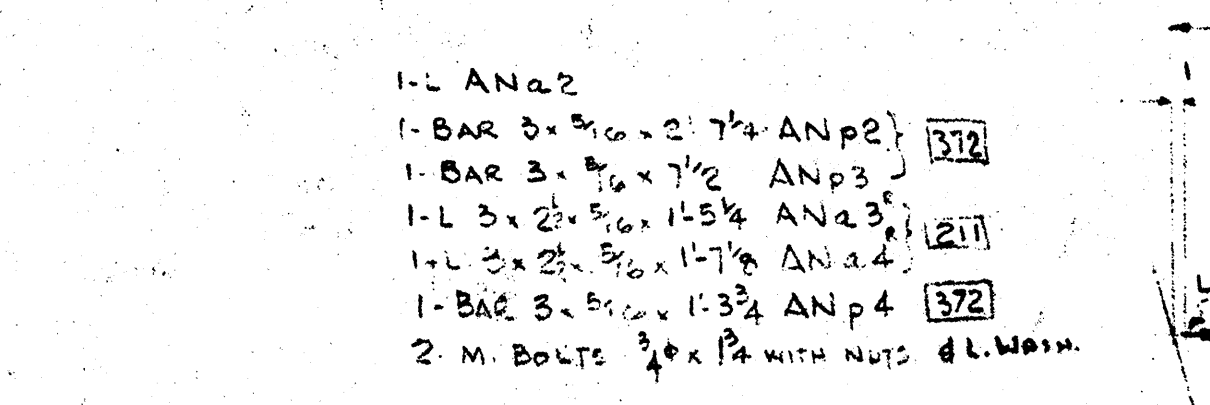 1-L ANa2
1-BAR 3 x 5/16 x 2'-7 1/4 ANp2 } 372
1-BAR 3 x 5/16 x 7 1/2 ANp3
1-L 3 x 2 1/2 x 5/16 x 1'-5 1/4 ANa3R } 211
1-L 3 x 2 1/2 x 5/16 x 1'-7 1/8 ANa4R
1-BAR 3 x 5/16 x 1'-3 3/4 ANp4 372
2-M. BOLTS 3/4 ϕ x 1 3/4 WITH NUTS & L. WASH.
1
L